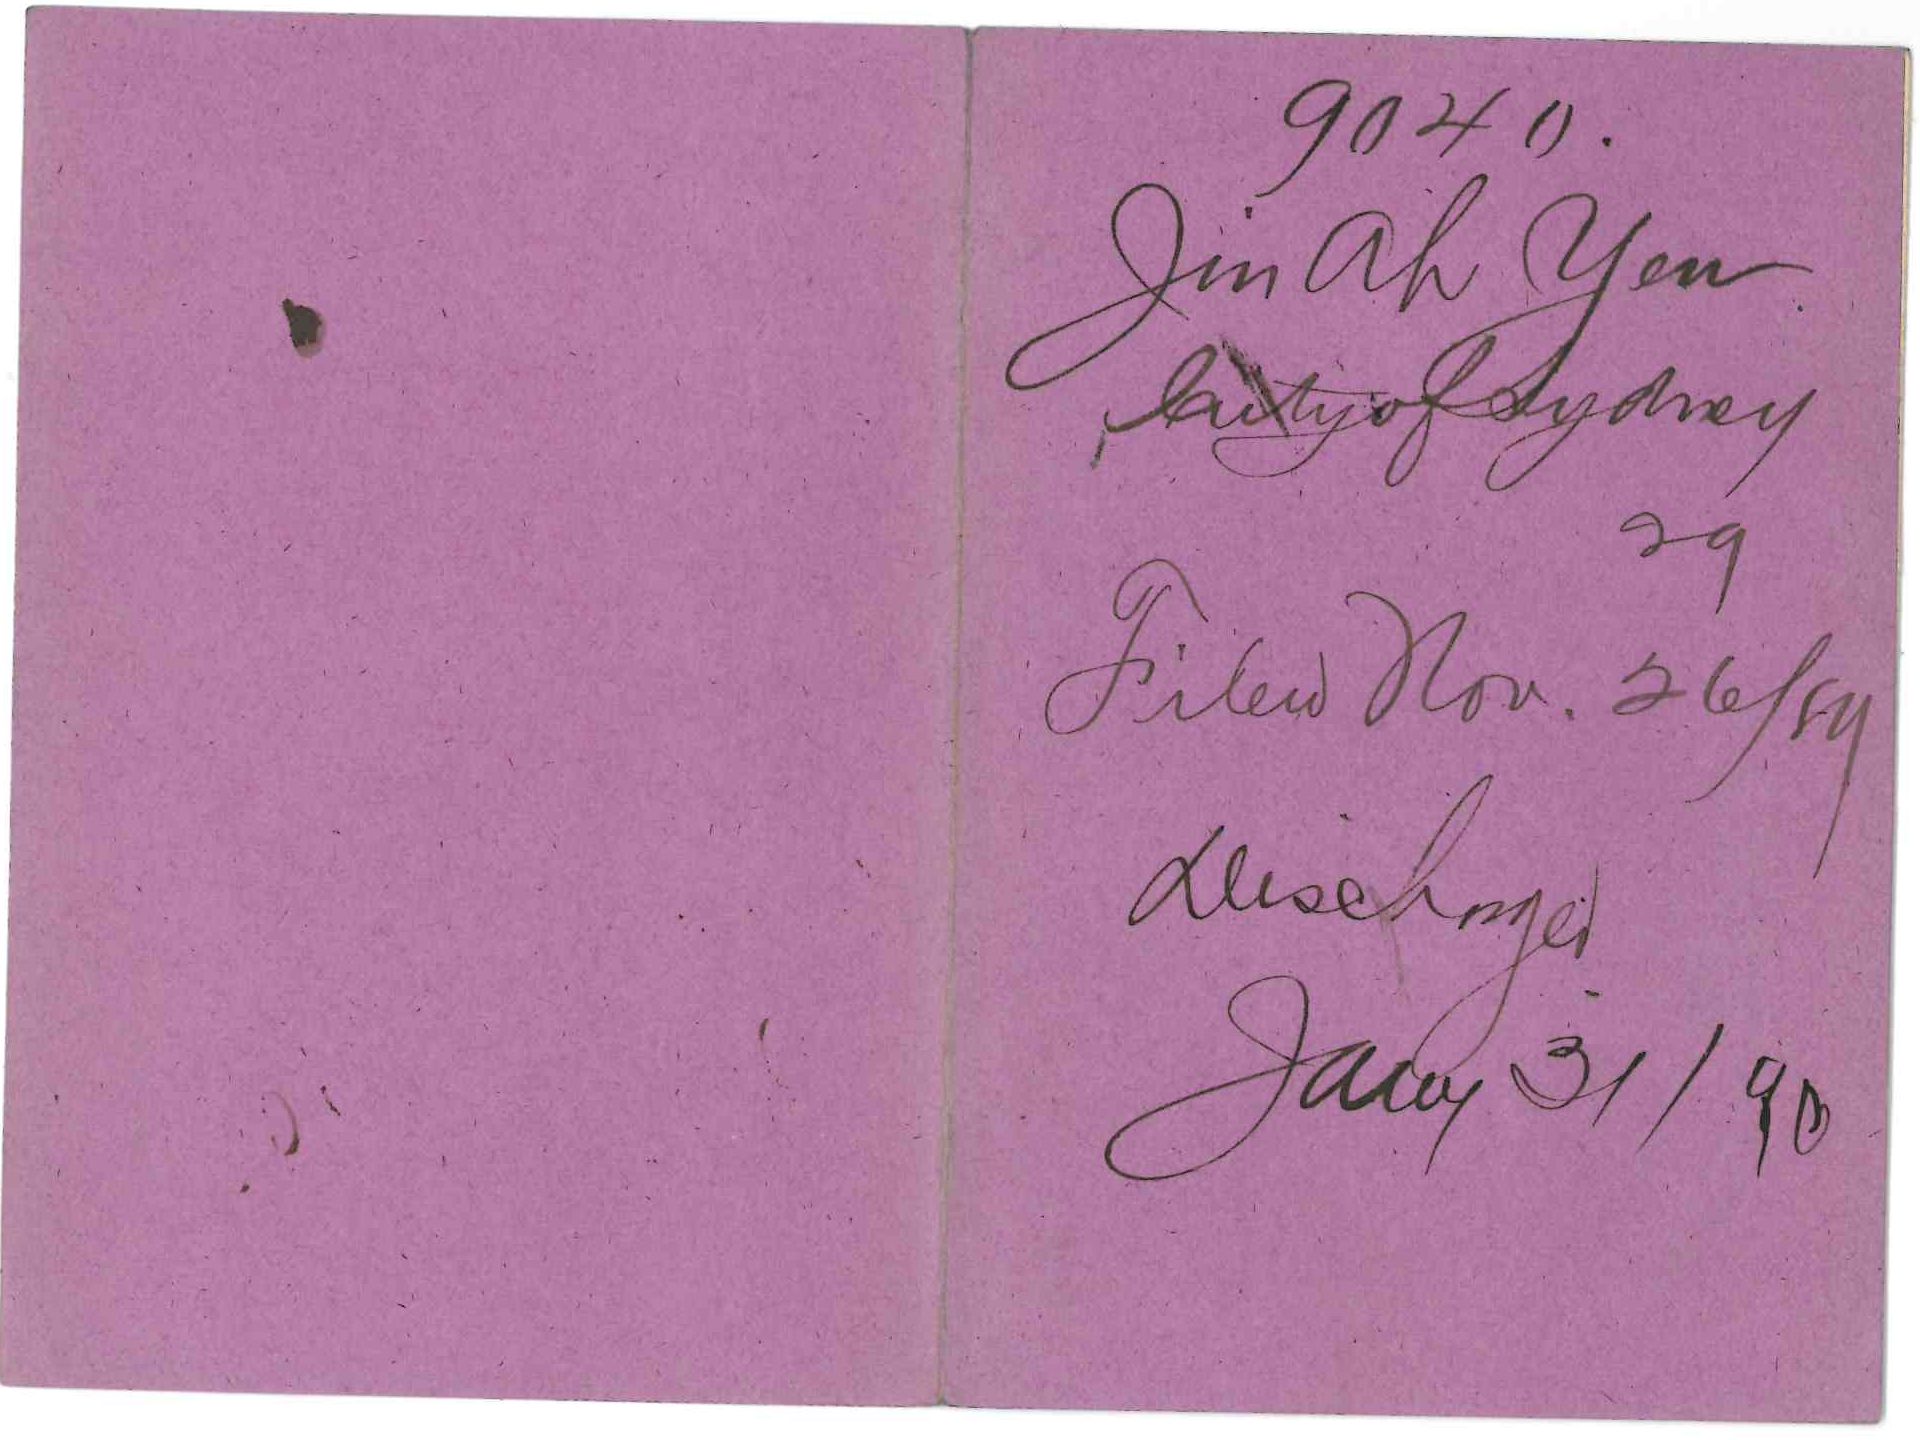 9040.
Jin Ah Yen
City of Sydney
29
Filed Nov. 26/89
Discharged
Jany 31/90